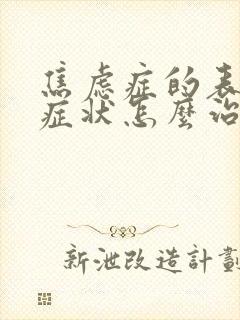 焦虑症的表
症状怎麼治
新泄改造計劃